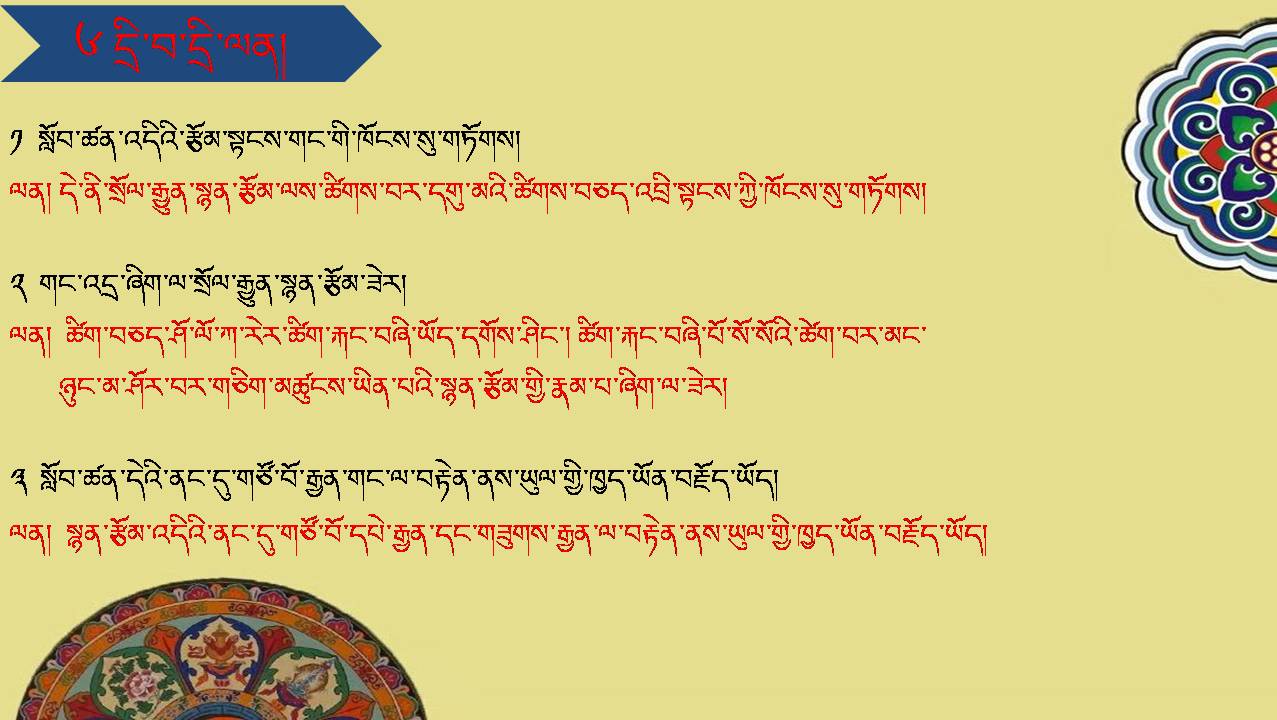 ༦ དྲི་བ་དྲི་ལན།
༡ སློབ་ཚན་འདིའི་རྩོམ་སྟངས་གང་གི་ཁོངས་སུ་གཏོགས།
ལན། དེ་ནི་སྲོལ་རྒྱུན་སྙན་རྩོམ་ལས་ཚིགས་བར་དགུ་མའི་ཚིགས་བཅད་འབྲི་སྟངས་ཀྱི་ཁོངས་སུ་གཏོགས།
༢ གང་འདྲ་ཞིག་ལ་སྲོལ་རྒྱུན་སྙན་རྩོམ་ཟེར།
ལན། ཚིག་བཅད་ཤོ་ལོ་ཀ་རེར་ཚིག་རྐང་བཞི་ཡོད་དགོས་ཤིང་། ཚིག་རྐང་བཞི་པོ་སོ་སོའི་ཚེག་བར་མང་
ཉུང་མ་ཤོར་བར་གཅིག་མཚུངས་ཡིན་པའི་སྙན་རྩོམ་གྱི་རྣམ་པ་ཞིག་ལ་ཟེར།
༣ སློབ་ཚན་དེའི་ནང་དུ་གཙོ་བོ་རྒྱན་གང་ལ་བརྟེན་ནས་ཡུལ་གྱི་ཁྱད་ཡོན་བརྗོད་ཡོད།
ལན། སྙན་རྩོམ་འདིའི་ནང་དུ་གཙོ་བོ་དཔེ་རྒྱན་དང་གཟུགས་རྒྱན་ལ་བརྟེན་ནས་ཡུལ་གྱི་ཁྱད་ཡོན་བརྗོད་ཡོད།